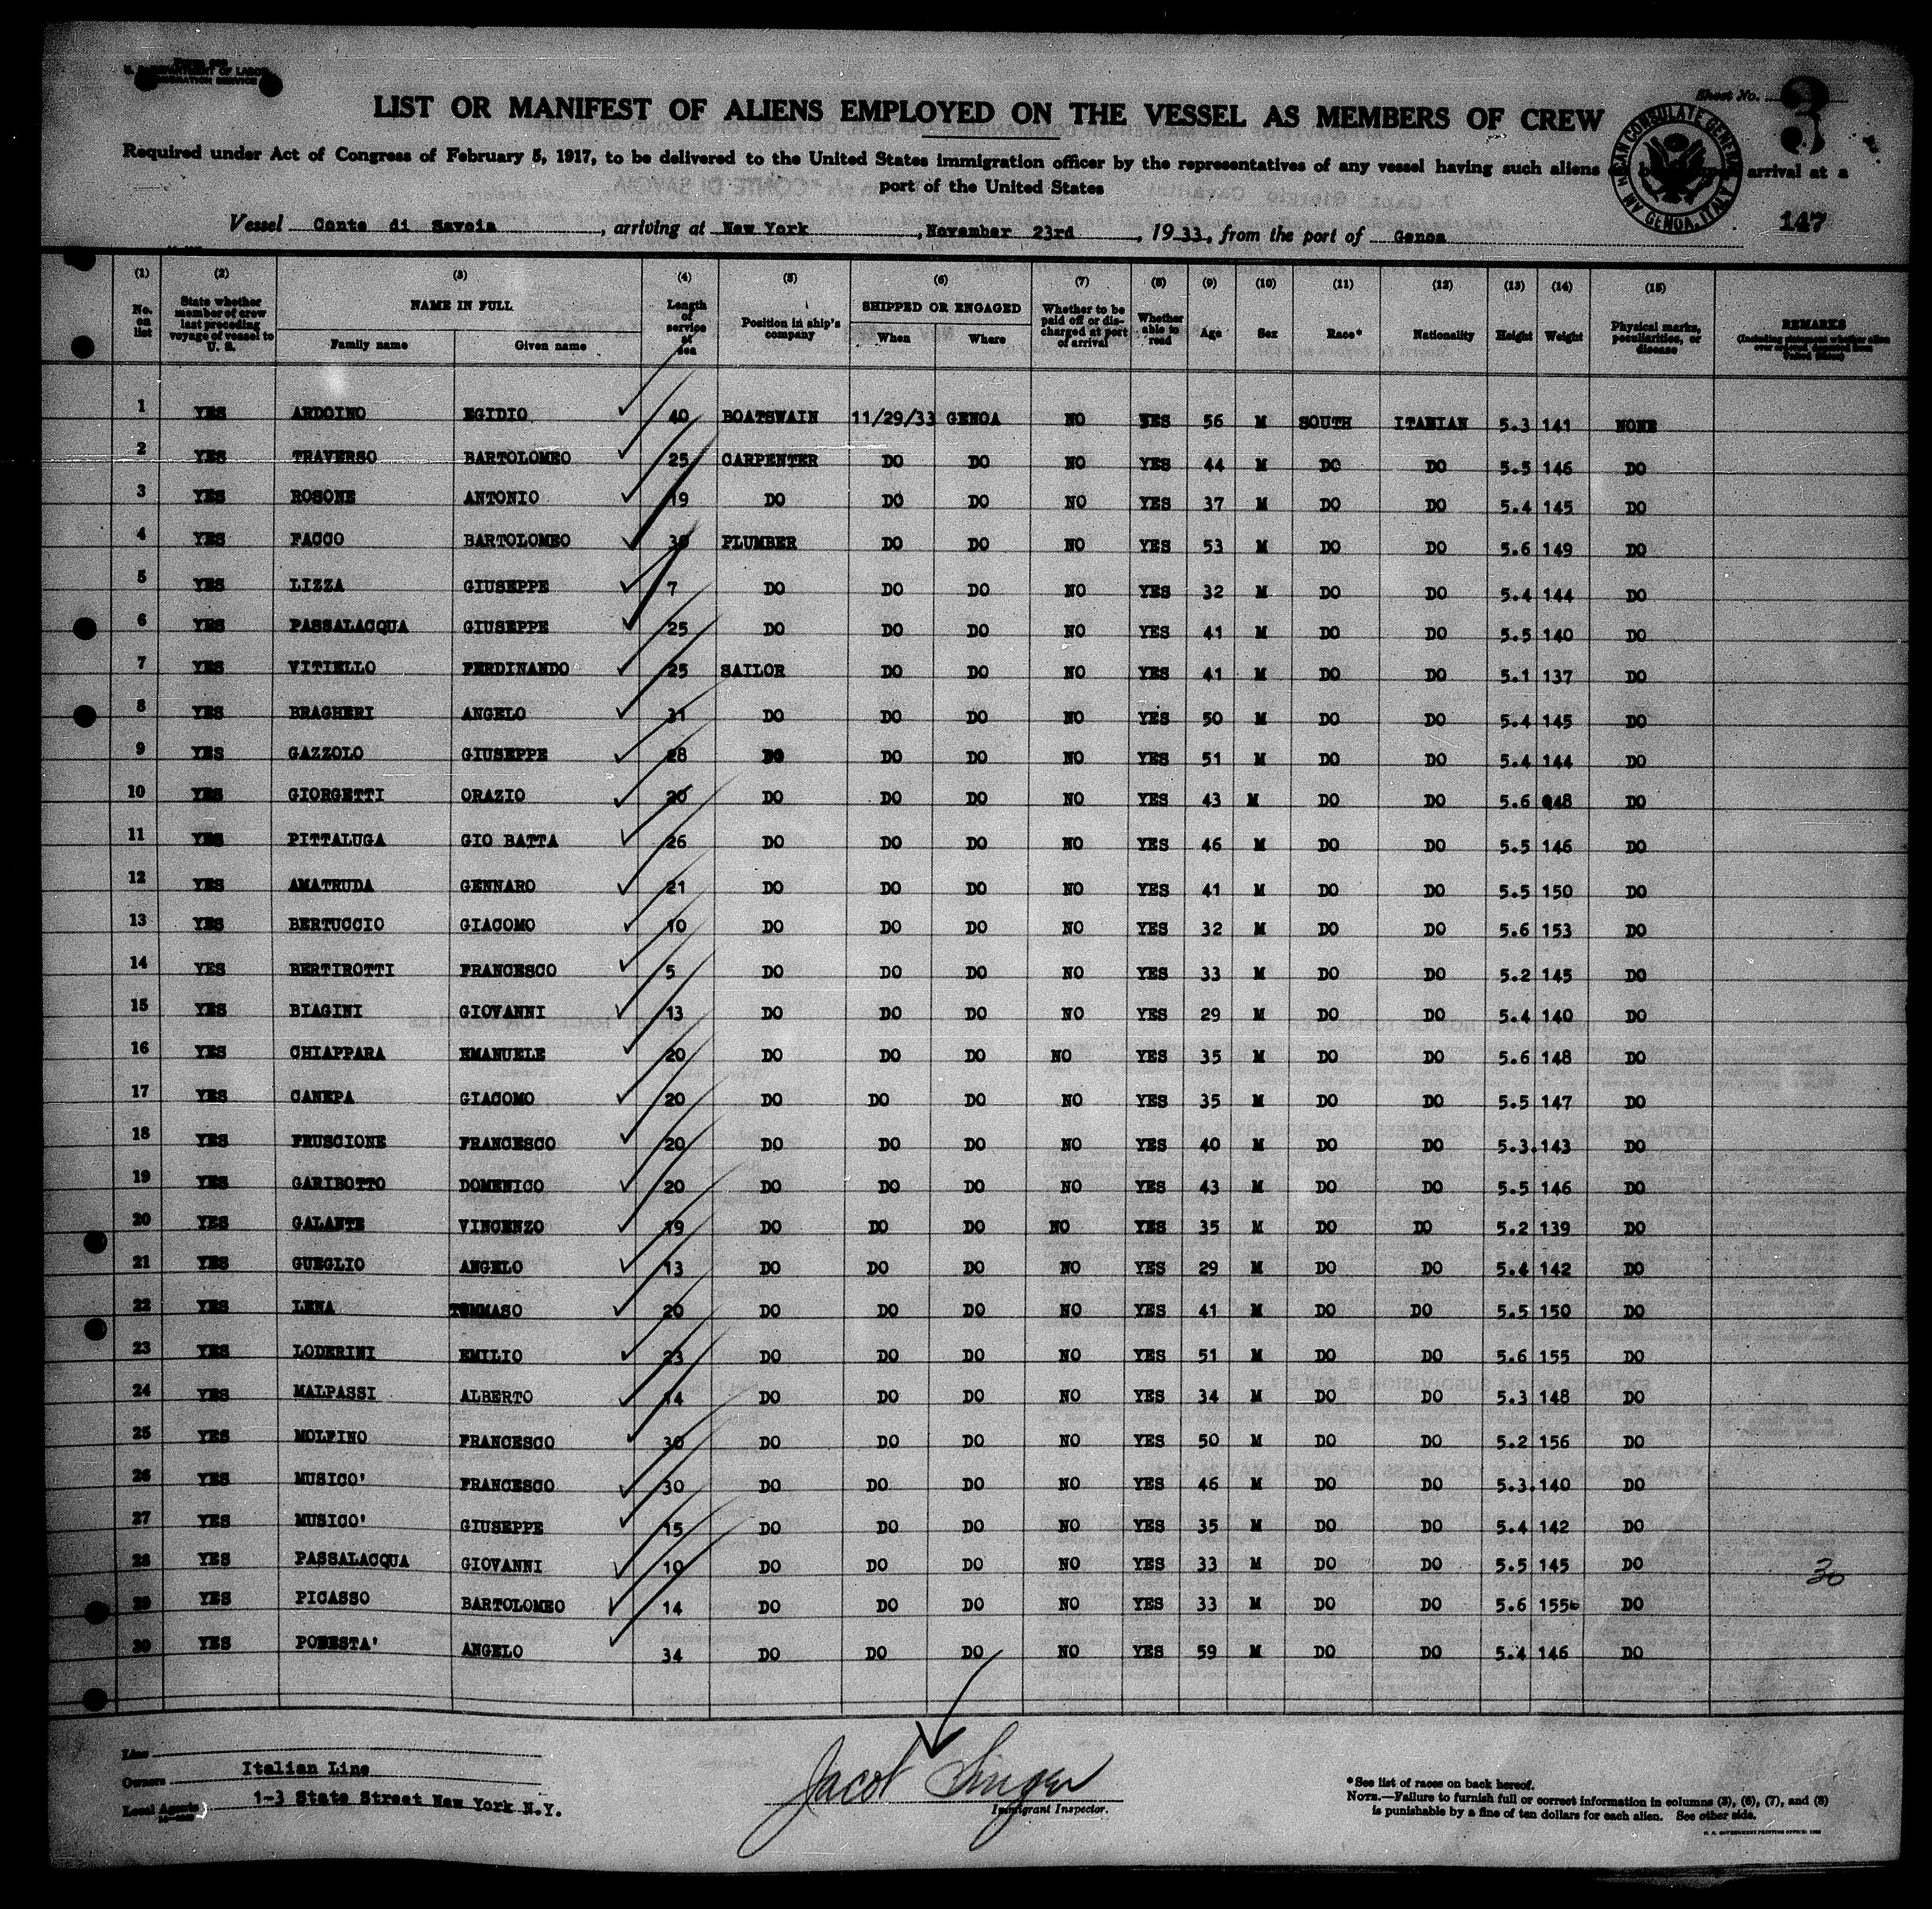 U. S. DEPARTMENT OF LABOR
IMMIGRATION SERVICE
Sheet No. 3
LIST OR MANIFEST OF ALIENS EMPLOYED ON THE VESSEL AS MEMBERS OF CREW
Required under Act of Congress of February 5, 1917, to be delivered to the United States immigration officer by the representatives of any vessel having such aliens arrival at a
port of the United States
GENOA, ITALY
147
Vessel Conte di Savoia, arriving at New York, November 23rd, 1933, from the port of Genoa
(1) (2) (3) (4) (5) (6) (7) (8) (9) (10) (11) (12) (13) (14) (15)
No. on list | State whether member of crew last preceding voyage of vessel to U. S. | NAME IN FULL Family name Given name | Length of service at sea | Position in ship's company | SHIPPED OR ENGAGED When Where | Whether to be paid off or discharged at port of arrival | Whether able to read | Age | Sex | Race* | Nationality | Height | Weight | Physical marks, peculiarities, or disease | REMARKS
1 YES ARDOINO EGIDIO 40 BOATSWAIN 11/29/33 GENOA NO YES 56 M SOUTH ITALIAN 5.3 141 NONE
2 YES TRAVERSO BARTOLOMEO 25 CARPENTER DO DO NO YES 44 M DO DO 5.5 146 DO
3 YES ROSONE ANTONIO 19 DO DO DO NO YES 37 M DO DO 5.4 145 DO
4 YES FACCO BARTOLOMEO 30 PLUMBER DO DO NO YES 53 M DO DO 5.6 149 DO
5 YES LIZZA GIUSEPPE 7 DO DO DO NO YES 32 M DO DO 5.4 144 DO
6 YES PASSALACQUA GIUSEPPE 25 DO DO DO NO YES 41 M DO DO 5.5 140 DO
7 YES VITIELLO FERDINANDO 25 SAILOR DO DO NO YES 41 M DO DO 5.1 137 DO
8 YES BRAGHERI ANGELO 31 DO DO DO NO YES 50 M DO DO 5.4 145 DO
9 YES GAZZOLO GIUSEPPE 28 DO DO DO NO YES 51 M DO DO 5.4 144 DO
10 YES GIORGETTI ORAZIO 20 DO DO DO NO YES 43 M DO DO 5.6 148 DO
11 YES PITTALUGA GIO BATTA 26 DO DO DO NO YES 46 M DO DO 5.5 146 DO
12 YES AMATRUDA GENNARO 21 DO DO DO NO YES 41 M DO DO 5.5 150 DO
13 YES BERTUCCIO GIACOMO 10 DO DO DO NO YES 32 M DO DO 5.6 153 DO
14 YES BERTIROTTI FRANCESCO 5 DO DO DO NO YES 33 M DO DO 5.2 145 DO
15 YES BIAGINI GIOVANNI 13 DO DO DO NO YES 29 M DO DO 5.4 140 DO
16 YES CHIAPPARA EMANUELE 20 DO DO DO NO YES 35 M DO DO 5.6 148 DO
17 YES CANEPA GIACOMO 20 DO DO DO NO YES 35 M DO DO 5.5 147 DO
18 YES FRUSCIONE FRANCESCO 20 DO DO DO NO YES 40 M DO DO 5.3 143 DO
19 YES GARIBOTTO DOMENICO 20 DO DO DO NO YES 43 M DO DO 5.5 146 DO
20 YES GALANTE VINCENZO 19 DO DO DO NO YES 35 M DO DO 5.2 139 DO
21 YES GUEGLIO ANGELO 13 DO DO DO NO YES 29 M DO DO 5.4 142 DO
22 YES LENA TOMMASO 20 DO DO DO NO YES 41 M DO DO 5.5 150 DO
23 YES LODERINI EMILIO 23 DO DO DO NO YES 51 M DO DO 5.6 155 DO
24 YES MALPASSI ALBERTO 14 DO DO DO NO YES 34 M DO DO 5.3 148 DO
25 YES MOLFINO FRANCESCO 30 DO DO DO NO YES 50 M DO DO 5.2 156 DO
26 YES MUSICO' FRANCESCO 30 DO DO DO NO YES 46 M DO DO 5.3 140 DO
27 YES MUSICO' GIUSEPPE 15 DO DO DO NO YES 35 M DO DO 5.4 142 DO
28 YES PASSALACQUA GIOVANNI 10 DO DO DO NO YES 33 M DO DO 5.5 145 DO
30
29 YES PICASSO BARTOLOMEO 14 DO DO DO NO YES 33 M DO DO 5.6 155 DO
30 YES PODESTA' ANGELO 34 DO DO DO NO YES 59 M DO DO 5.4 146 DO
Line
Owners Italian Line
Local Agents 1-3 State Street New York N.Y.
Jacob Singer
Immigrant Inspector.
*See list of races on back hereof.
NOTE.—Failure to furnish full or correct information in columns (3), (6), (7), and (8)
is punishable by a fine of ten dollars for each alien. See other side.